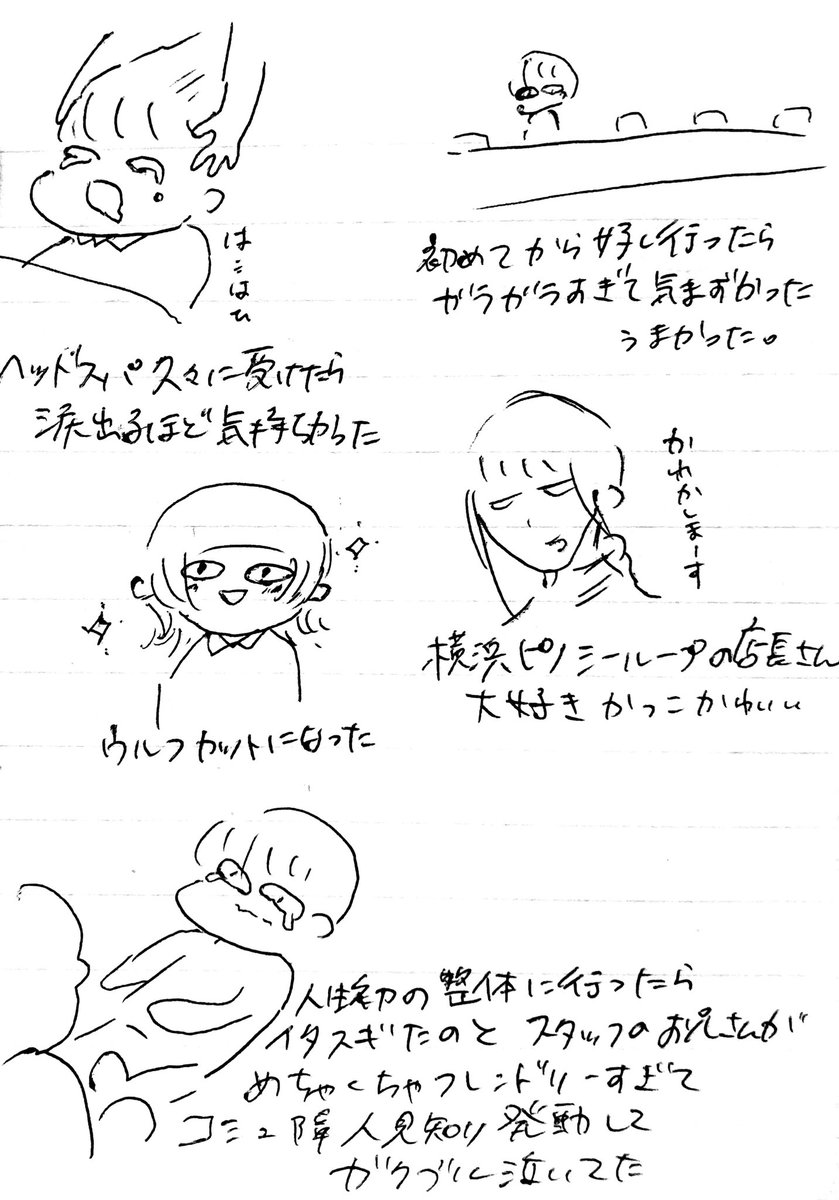 はゞはひ
ヘッドスパ久々に受けたら
涙出るほど気持ちよかった
初めてから好し行ったら
ガラガラすぎて気まずかった
うまかった。
ウルフカットになった
かれかしまーす
横浜ピンミーループの店長さん
大好きかっこかわいい
人生初の整体に行ったら
イタスギたのと スタッフのお兄さんが
めちゃくちゃフレンドリーすぎて
コミュ障人見知り発動して
ガクブル泣いてた